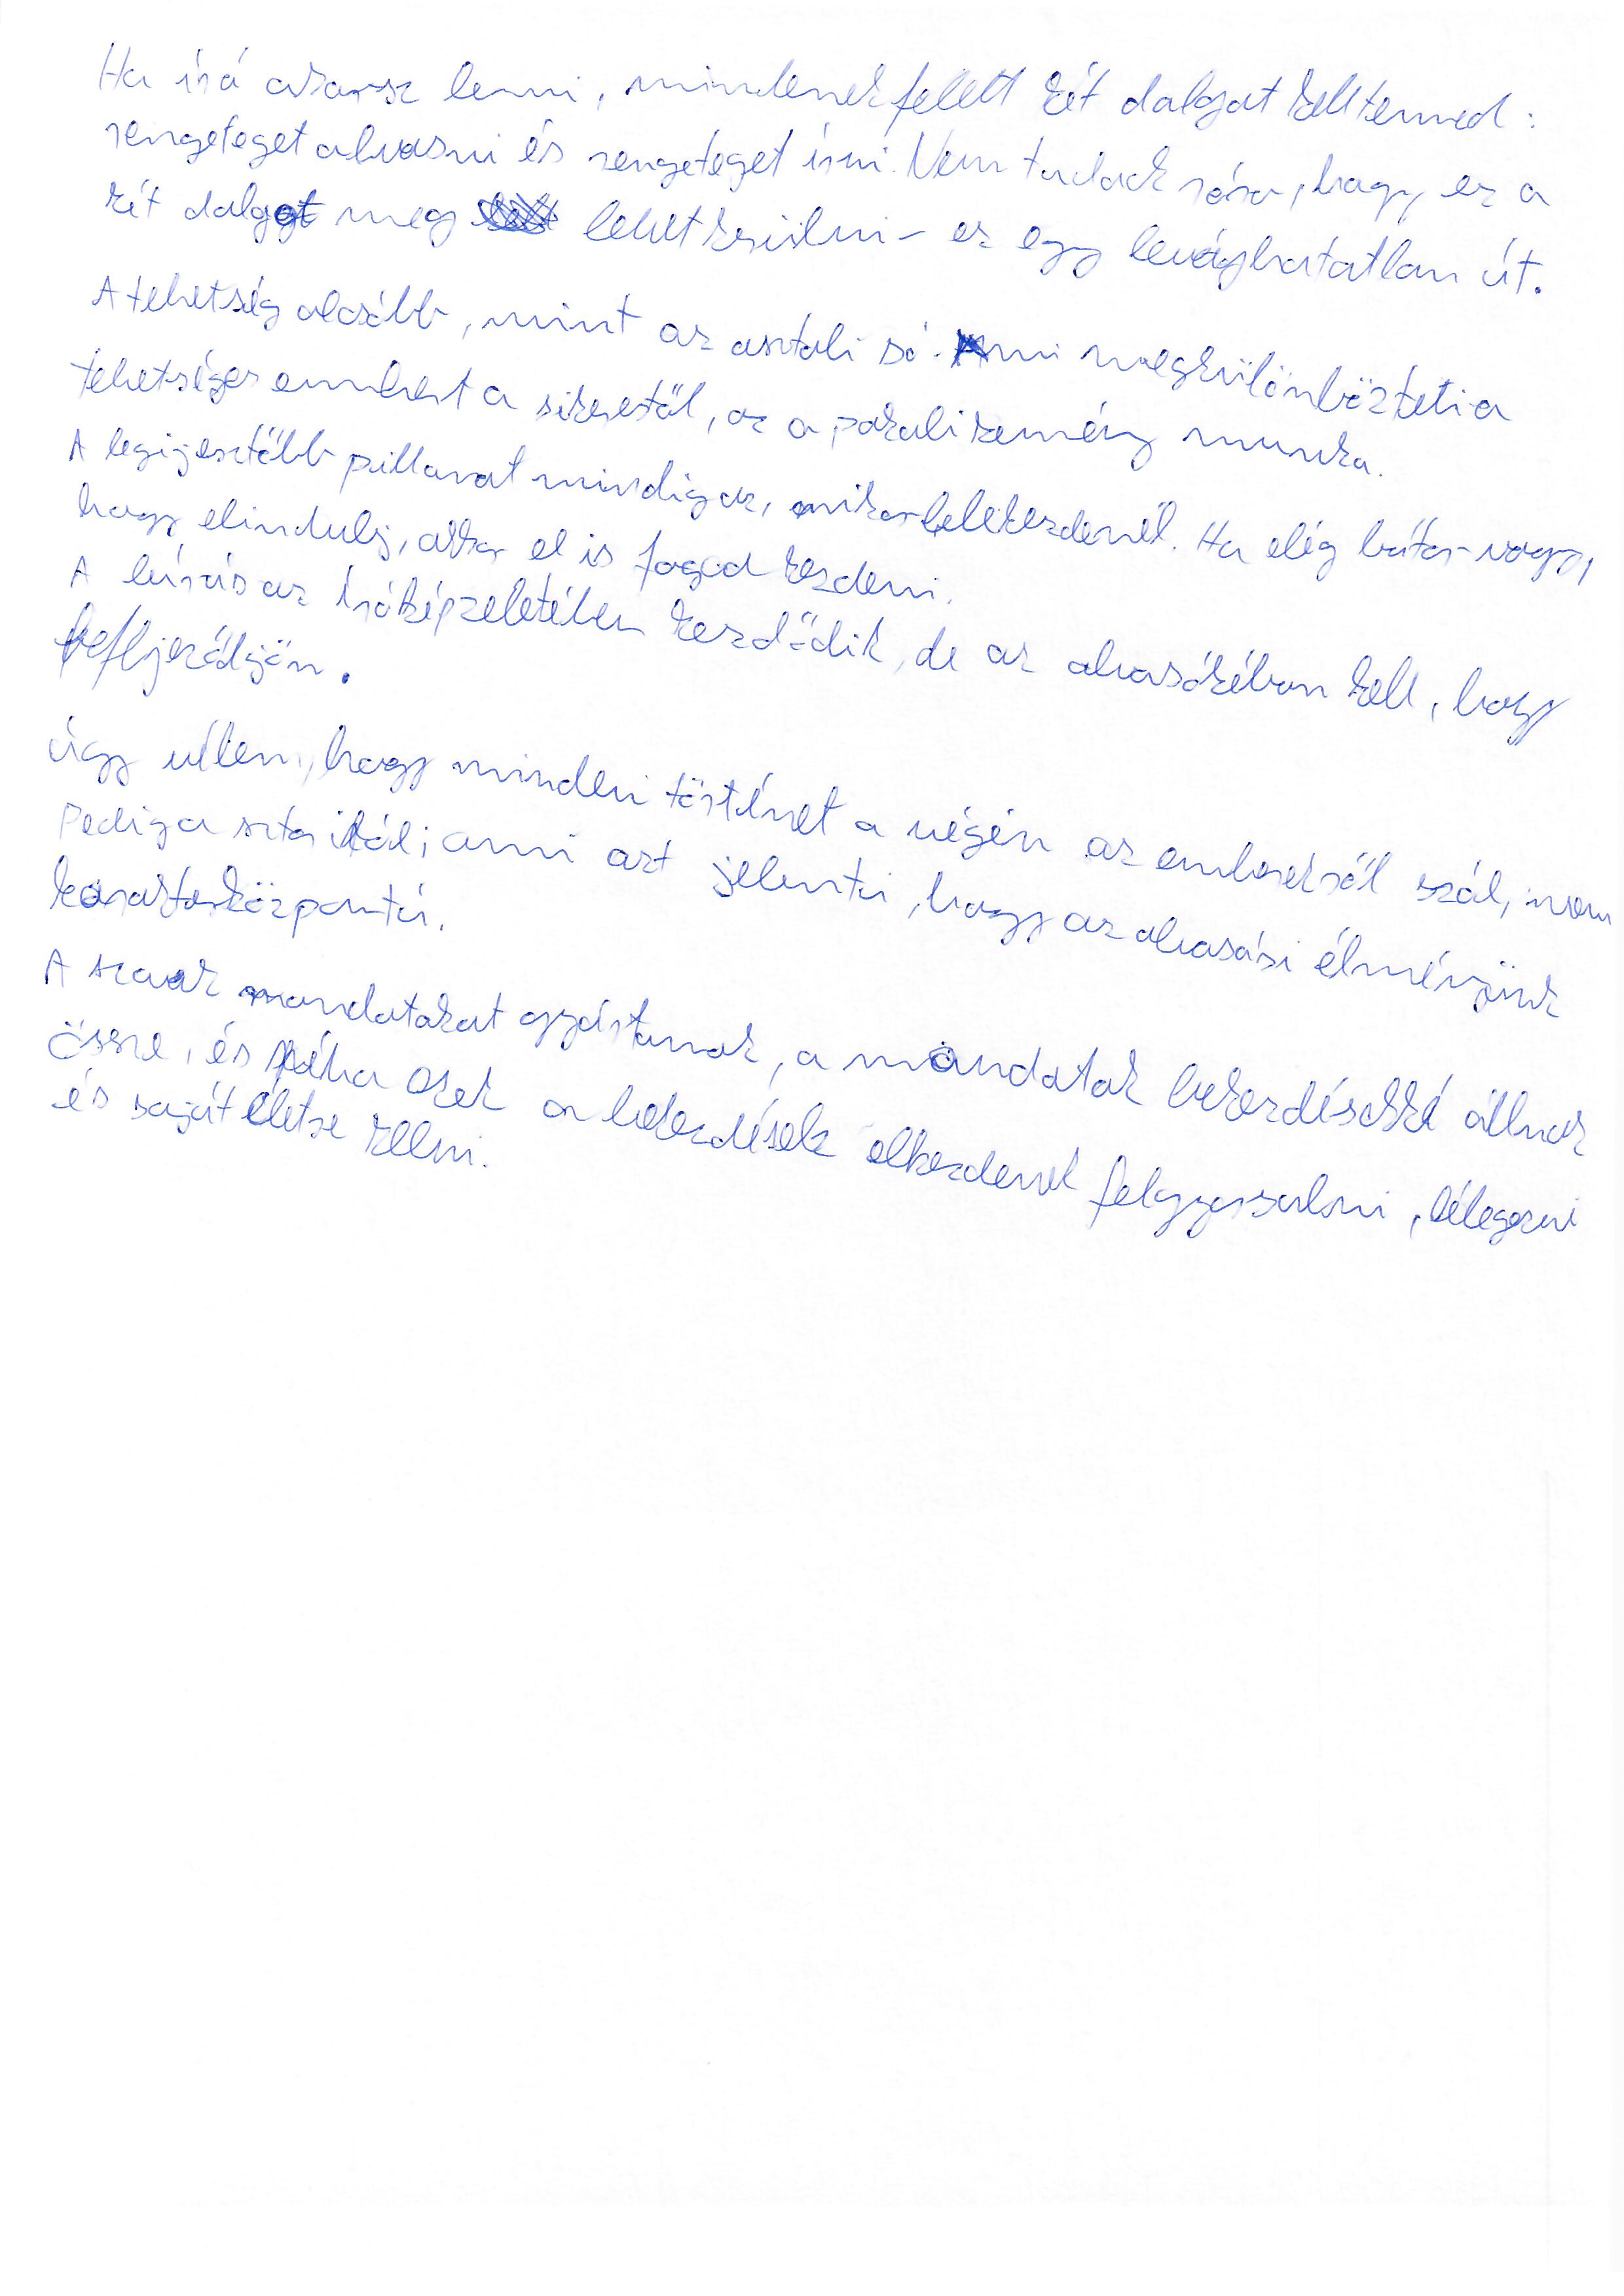 Ha író akarsz lenni, mindenek felett két dolgot kell tenned:
rengeteget olvasni és rengeteget írni. Nem tudok róla, hogy ez a
két dolgot meg lehet kerülni – ez egy levághatatlan út.
A tehetség olcsóbb, mint az asztali só. Ami megkülönbözteti a
tehetséges embert a sikerestől, az a pokoli kemény munka.
A legijesztőbb pillanat mindig az, mikor belekezdenél. Ha elég bátor vagy,
hogy elindulj, akkor el is fogod kezdeni.
A leírás az író képzeletében kezdődik, de az olvasóéban kell, hogy
befejeződjön.
Úgy vélem, hogy minden történet a végén az emberekről szól, nem
pedig a sztoriról; ami azt jelenti, hogy az olvasási élményünk
karakterközpontú.
A szavak mondatokat gyártanak, a mondatok bekezdésekké állnak
össze, és néha ezek a bekezdések elkezdenek felgyorsulni, lélegezni
és saját életre kelni.